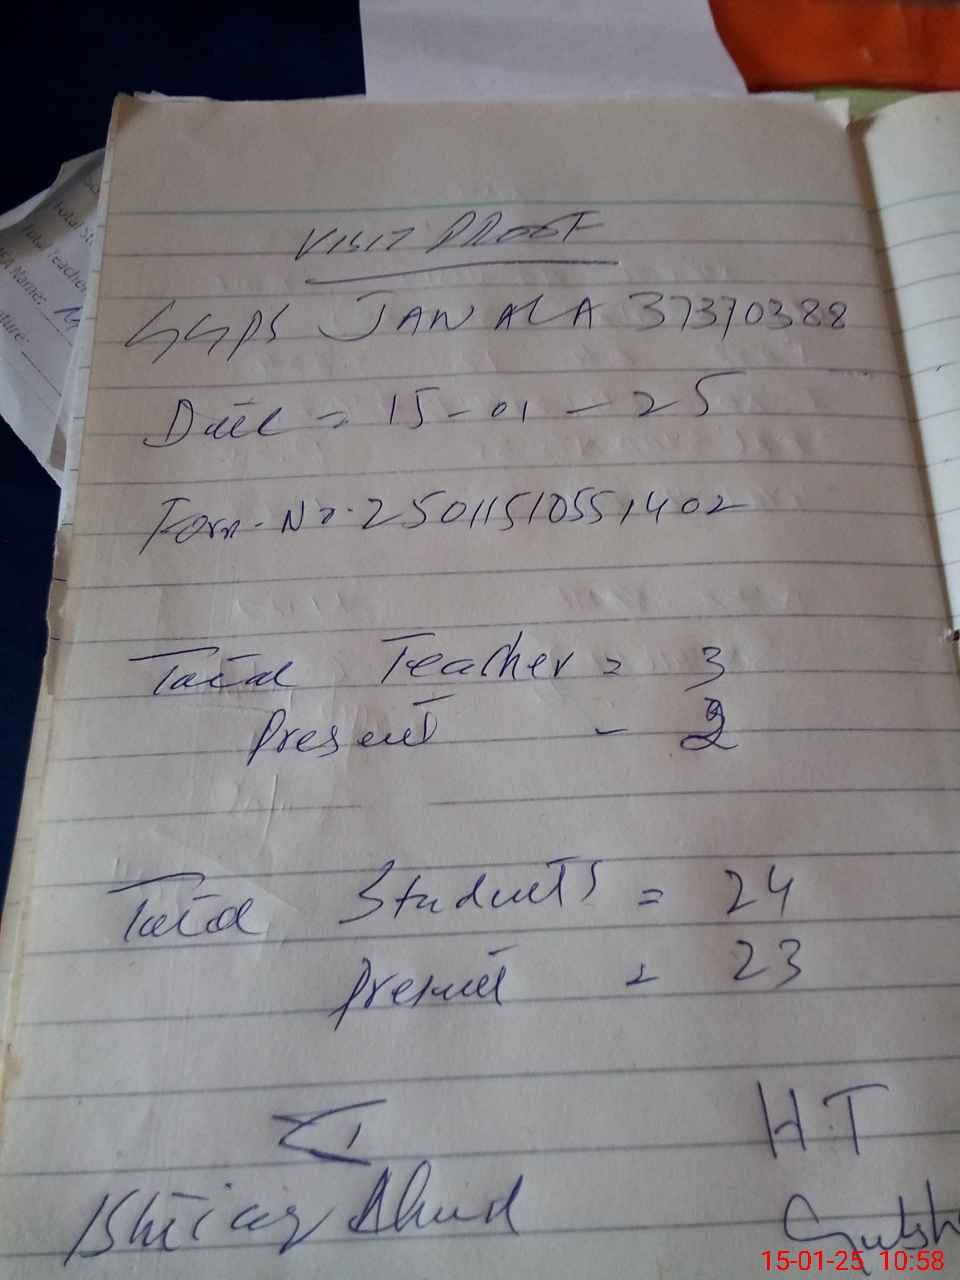 Total St
Total Teacher
Name: M
ature:
VISIT PROOF
GGPS JANALA 37370388
Date = 15-01-25
Form-No. 25011510551402
Total Teacher = 3
Present - 2
Total Students = 24
Present = 23
H.T
Ahmd
15-01-25 10:58